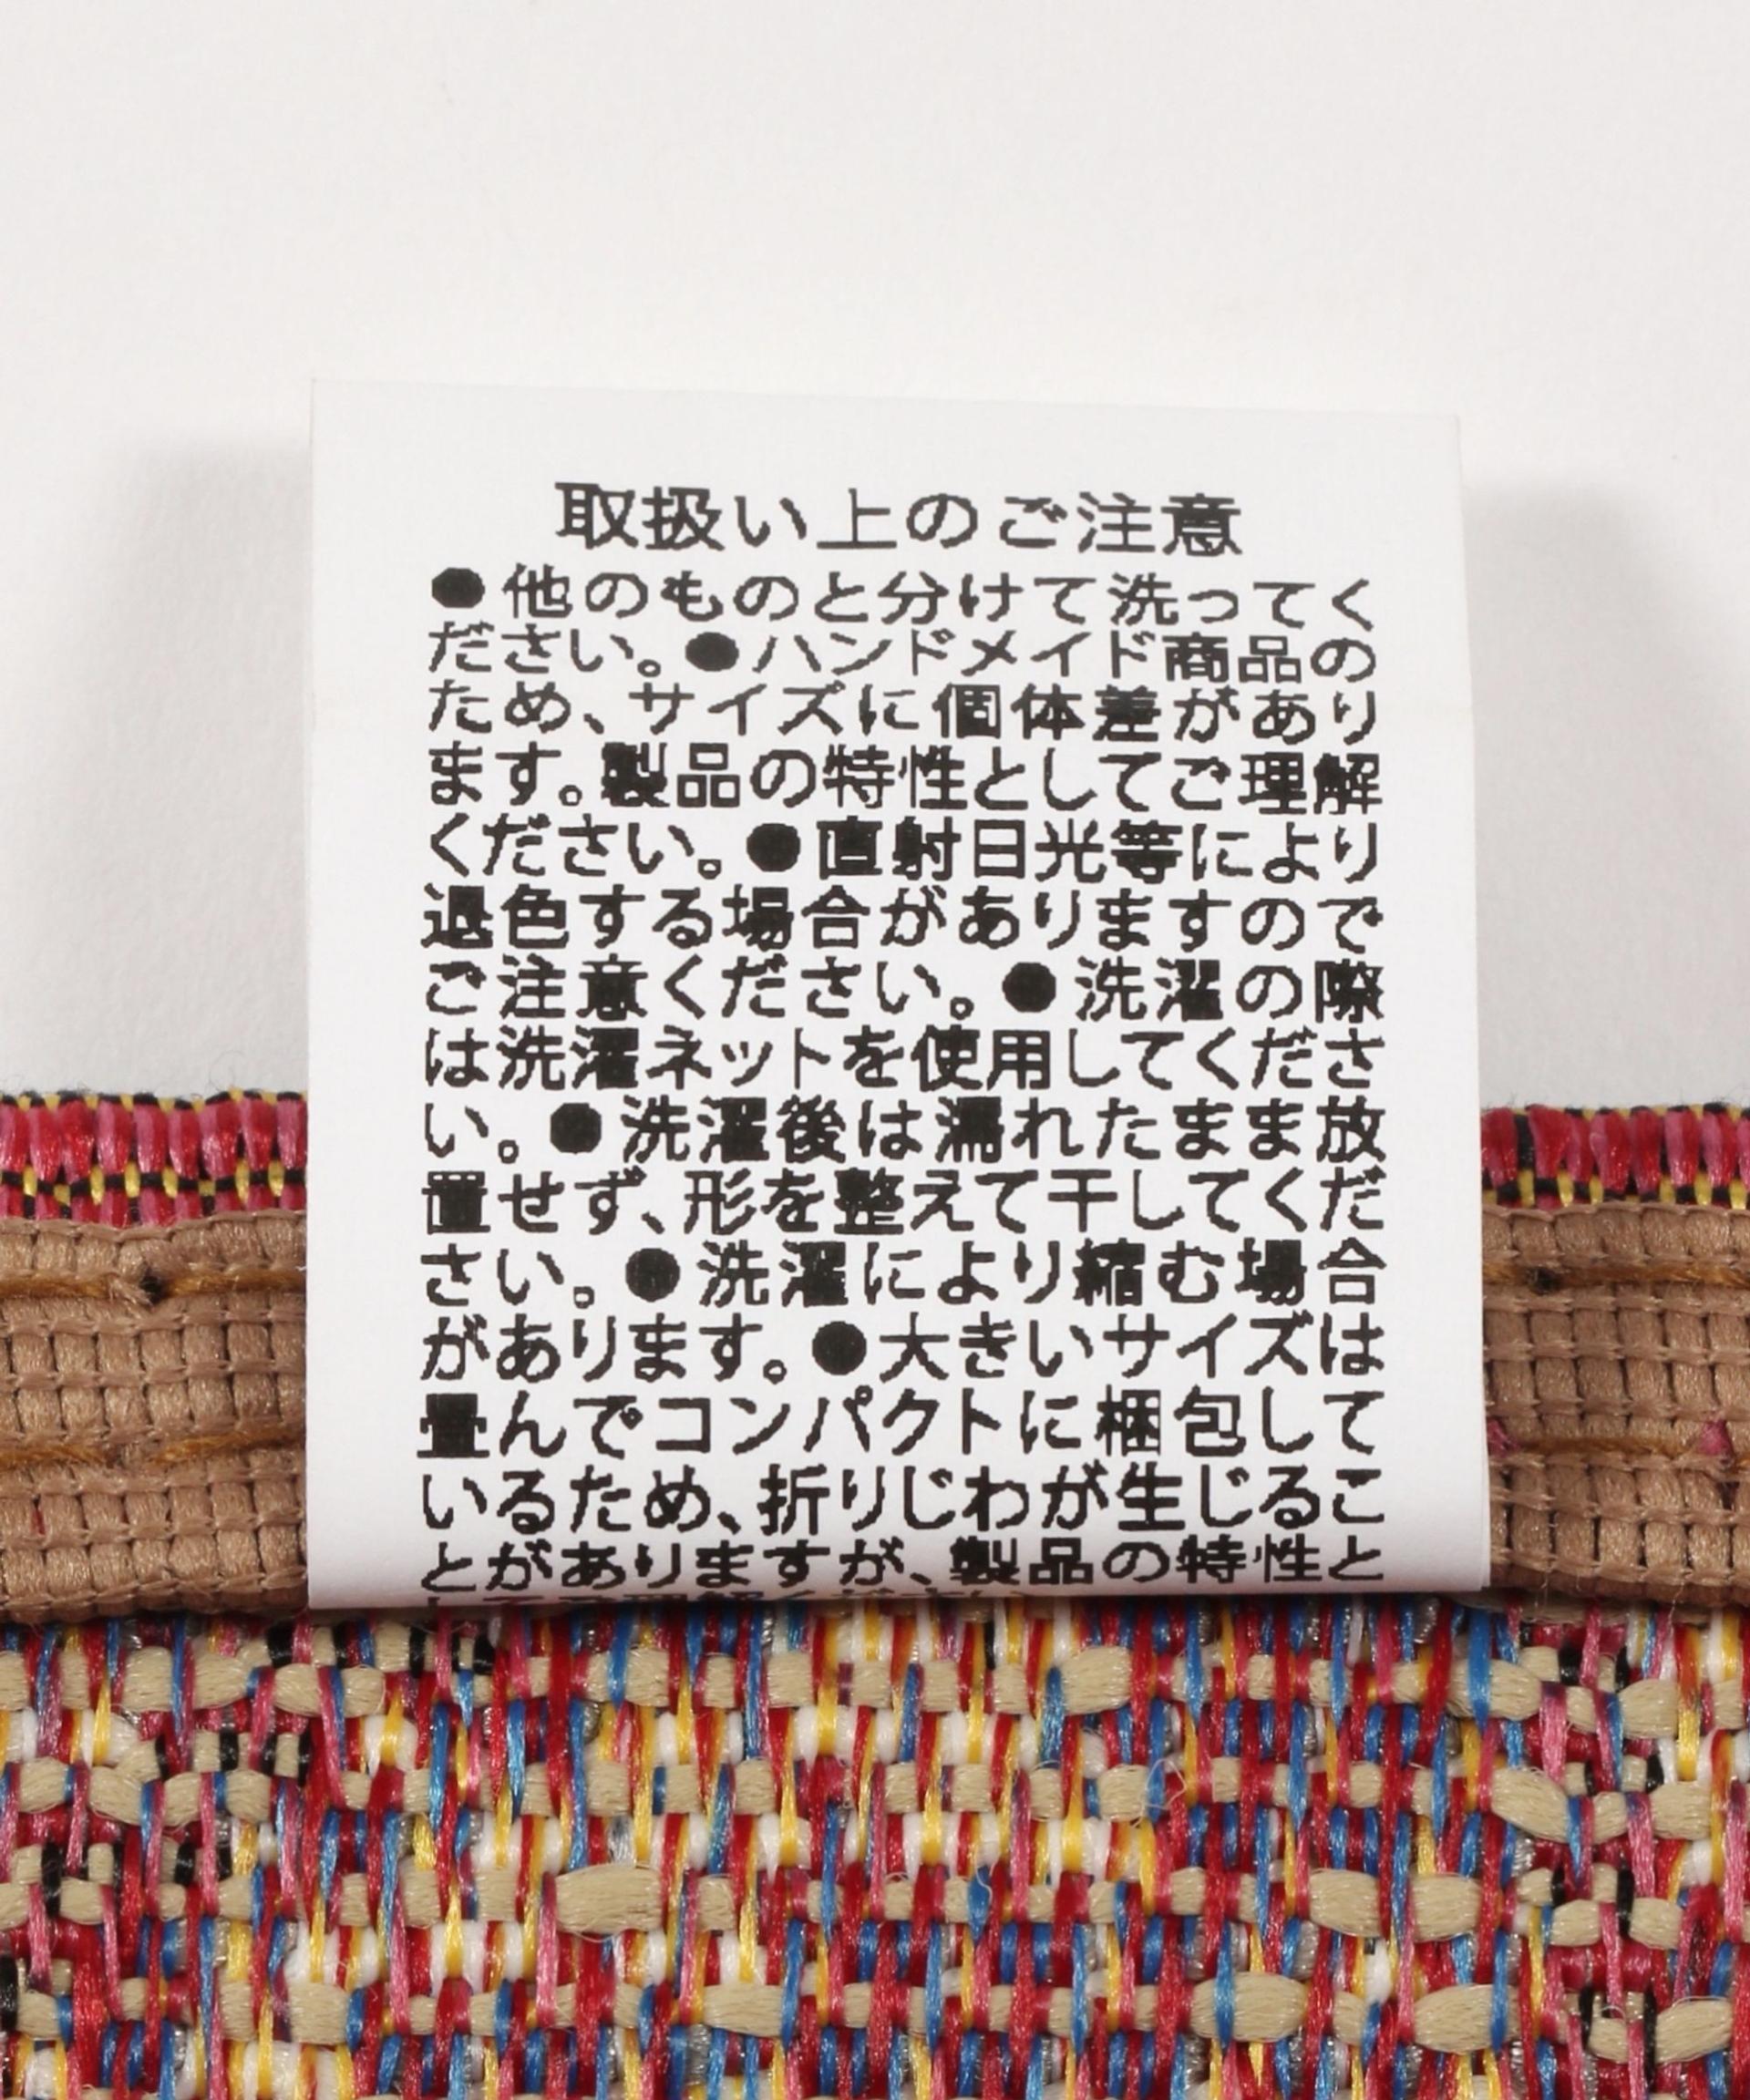 取扱い上のご注意
●他のものと分けて洗ってく
ださい。●ハンドメイド商品の
ため、サイズに個体差があり
ます。製品の特性としてご理解
ください。●直射日光等により
退色する場合がありますので
ご注意ください。●洗濯の際
は洗濯ネットを使用してくださ
い。●洗濯後は濡れたまま放
置せず、形を整えて干してくだ
さい。●洗濯により縮む場合
があります。●大きいサイズは
畳んでコンパクトに梱包して
いるため、折りじわが生じるこ
とがありますが、製品の特性と